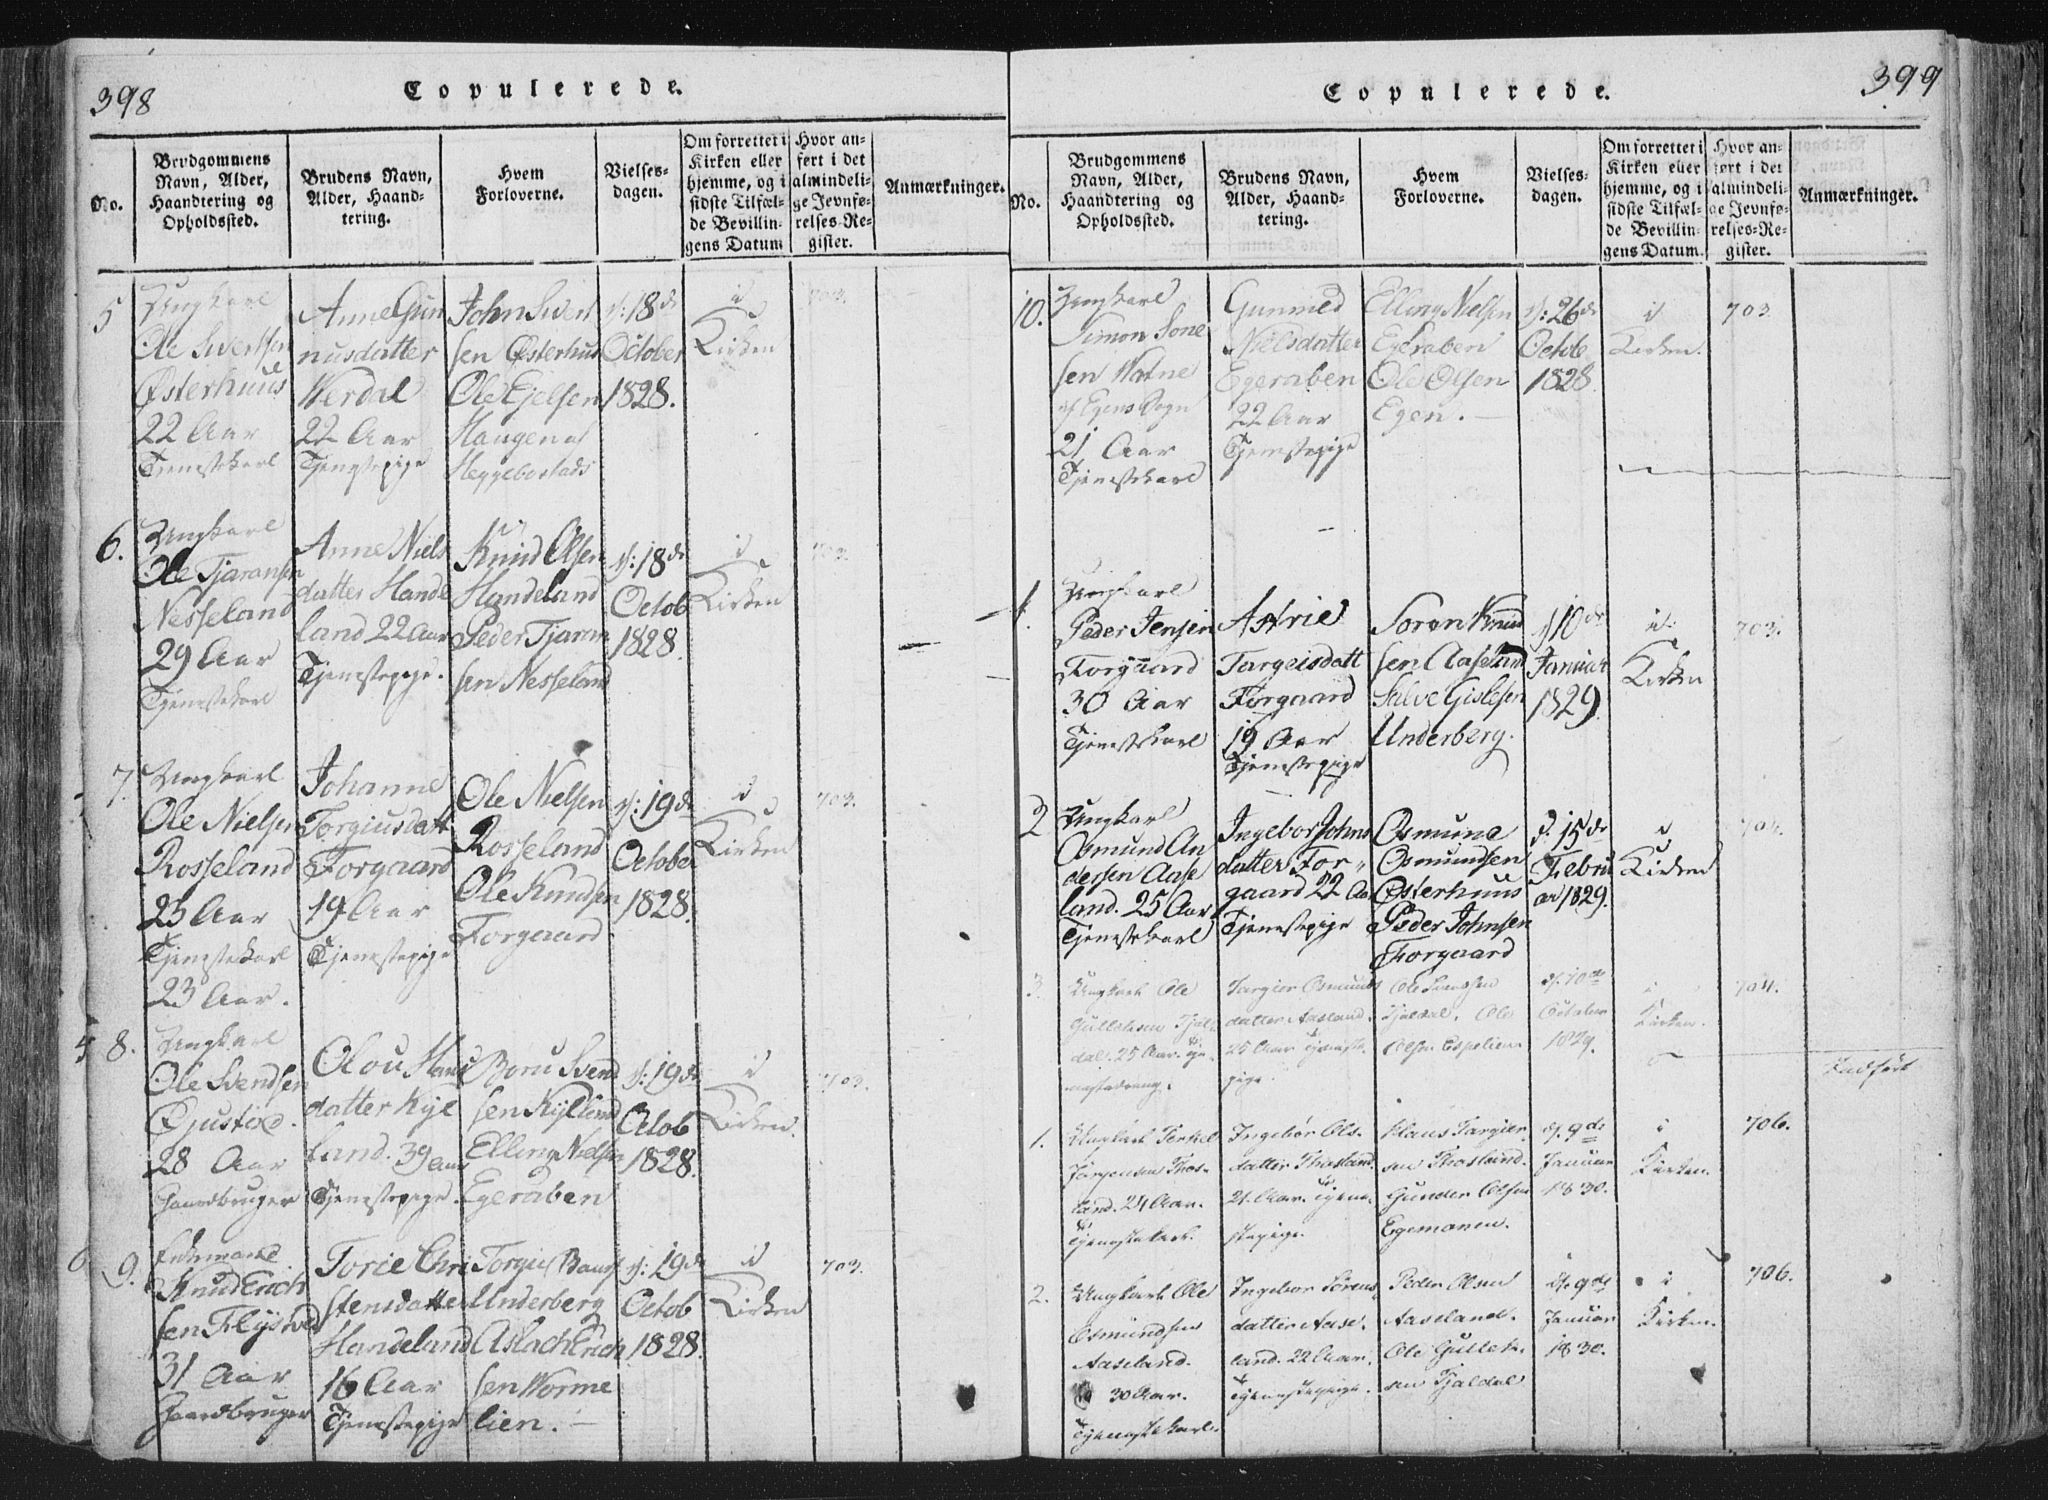 398
Copulerede.
No.
Brudgommens Navn, Alder, Haandtering og Opholdssted.
Brudens Navn, Alder, Haandtering.
Hvem Forloverne.
Vielsesdagen.
Om forrettet i Kirken eller hjemme, og i sidste Tilfælde Bevillingens Datum
Hvor anført i det almindelige Jevnførelses-Register.
Anmærkninger.
5
Ungkarl
Ole Sivertsen
Østerhuus
22 Aar
Tjenestekarl
Anne Gun
nusdatter
Werdal
22 Aar
Tjenestepige
John Siver
sen Østerhuus
Ole Ejelsen
Haugen af
Heggebostads
d: 18de
October
1828.
i
Kirken
703.
6.
Ungkarl
Ole Tjaransen
Nesseland
29 Aar
Tjenestekarl
Anne Niels
datter Hande
land 22 Aar
Tjenestepige.
Knud Olsen
Handeland
Peder Tjaran
sen Nesseland
d: 18de
Octob
1828.
i
Kirken
703.
7.
Ungkarl
Ole Nielsen
Rosseland
23 Aar
Tjenestekarl
23 Aar.
Johanne
Torgiusdatt
Forgaard
19 Aar
Tjenestepige
Ole Nielsen
Rosseland
Ole Knudsen
Forgaard
d: 19de
October
1828.
i
Kirken
703.
8.
Ungkarl
Ole Svendsen
28 Aar
Gaardbruger
Olou Hans
datter Kyl
land. 39 aar
Tjenestepige.
Boru Svend
sen Kylland
Elling Nielsen
Egeraben
d: 19de
Octob
1828.
i
Kirken.
703.
9.
Enkemand
Knud Erich
sen
31 Aar
Gaardbruger
Torie Chri
stensdatter
Handeland
16 Aar
Tjenestepige
Torgiu
Underberg
Aslach Erich
sen Worme
lien.
d: 19de
Octob
1828.
i
Kirken
703.
399
Copulerede.
No.
Brudgommens Navn, Alder, Haandtering og Opholdssted.
Brudens Navn, Alder, Haandtering.
Hvem Forloverne.
Vielsesdagen.
Om forrettet i Kirken eller hjemme, og i sidste Tilfælde Bevillingens Datum.
Hvor anført i det almindelige Jevnførelses-Register.
Anmærkninger.
10.
Ungkarl
Simon Sone
sen Watne
af Egens Sogn
21 Aar
Tjenestekarl
Gunnild
Nielsdatter
Egeraben
22 Aar
Tjenestepige
Elling Nielsen
Egeraben
Ole Olsen
Egen.
d: 26de
Octob
1828.
i
Kirken.
703
1.
Ungkarl
Peder Jensen
Forgaard
30 Aar
Tjenestekarl
Astrie
Targeisdatt
Forgaard
19 Aar
Tjenestepige
Soren Knud
sen Aaseland
Salve Gislesen
Underberg.
d 10de
Januar
1829.
i
Kirken
703.
2
Ungkarl
Osmund An
dersen Aase
land. 25 Aar
Tjenestekarl
Ingebor Johns
datter For
gaard 22 Aar
Tjenestepige
Osmund
Osmundsen
Østerhuus
Peder Johnsen
Forgaard
d. 15de
Febru
ar 1829.
i
Kirken
704.
3.
Ungkarl Ole
Gullaksen Tjal
dal. 25 Aar. Tje
nestedreng.
Targier Osmunds
datter Aasland.
25 Aar Tjeneste
pige.
Ole Svensen
Tjaldal. Ole
Olsen Espelien
d. 10de
October
1829.
i
Kirken.
704.
Indført
1.
Ungkarl Terkel
Jørgensen Thos
land. 24 Aar.
Tjenestekarl.
Ingebor Ols
datter Thosland.
21. Aar. Tjene
stepige.
Klaus Targier
sen Thosland.
Gunder Olsen
Egemonen.
d. 9de
Januar
1830.
i
Kirken.
706.
2.
Ungkarl Ole
Osmundsen
Aaseland.
30 Aar.
Tjenestekarl.
Ingebor Sørens
datter Aase
land. 22 Aar.
Tjenestepige.
Peder Olsen
Aaseland.
Ole Gullak
sen Tjaldal
d. 9de
Januar
1830.
i
Kirken.
706.